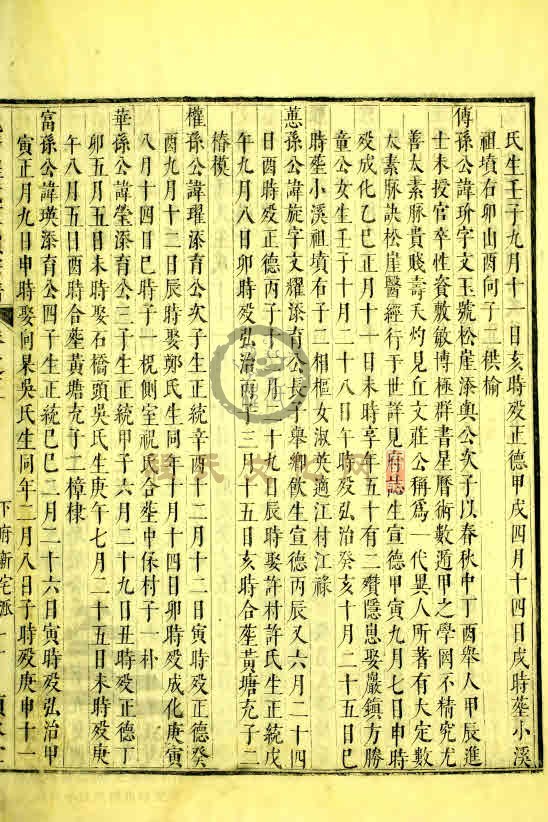 氏生壬子九月十 日亥時殁正德甲戌四月十四日戌時塟小溪
祖墳右卯山酉向子二供榆
傳孫公諱玠字文玉號松崖添與公次子以春秋中丁酉舉人甲辰進
士未授官卒性資敷敏博極群書星曆術數遁甲之學罔不精究尤
善太素脉貴賤壽夭灼見丘文莊公稱爲一代異人所著有大定數
太素脉訣松崖醫經行于世詳見府誌生宣德甲寅九月七日申時
殁成化乙巳正月十一日未時享年五十有二殯隱崽娶巖鎮方勝
童公女生壬子十月二十八日午時殁弘治癸亥十月二十五日巳
時塟小溪祖墳右子二相樞女淑英適江村江祿
蕙孫公諱旋字文耀添育公長子舉鄉飲生宣德丙辰又六月二十四
日酉時殁正德丙子十一月二十九日辰時娶許村許氏生正統戊
午九月八日卯時殁弘治丙辰三月十五日亥時合塟黃塘充子二
椿模
權孫公諱瑾添育公次子生正統辛酉十二月十二日寅時殁正德癸
酉九月十二日辰時娶鄭氏生同年十月十四日卯時殁成化庚寅
八月十四日巳時子一梲側室祝氏合塟中保村子一朴
華孫公諱瑩添育公三子生正統甲子六月二十九日丑時殁正德丁
卯五月五日未時娶石橋頭吳氏生庚午七月二十五日未時殁庚
午八月五日酉時合塟黃塘充子二樟棣
富孫公諱瑛添育公四子生正統己巳二月二十六日寅時殁弘治甲
寅正月九日申時娶向杲吳氏生同年二月八日子時殁庚申十一
下府新宅派